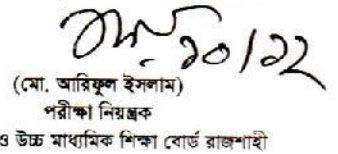 ২০/১২
(মো. আরিফুল ইসলাম)
পরীক্ষা নিয়ন্ত্রক
ও উচ্চ মাধ্যমিক শিক্ষা বোর্ড রাজশাহী